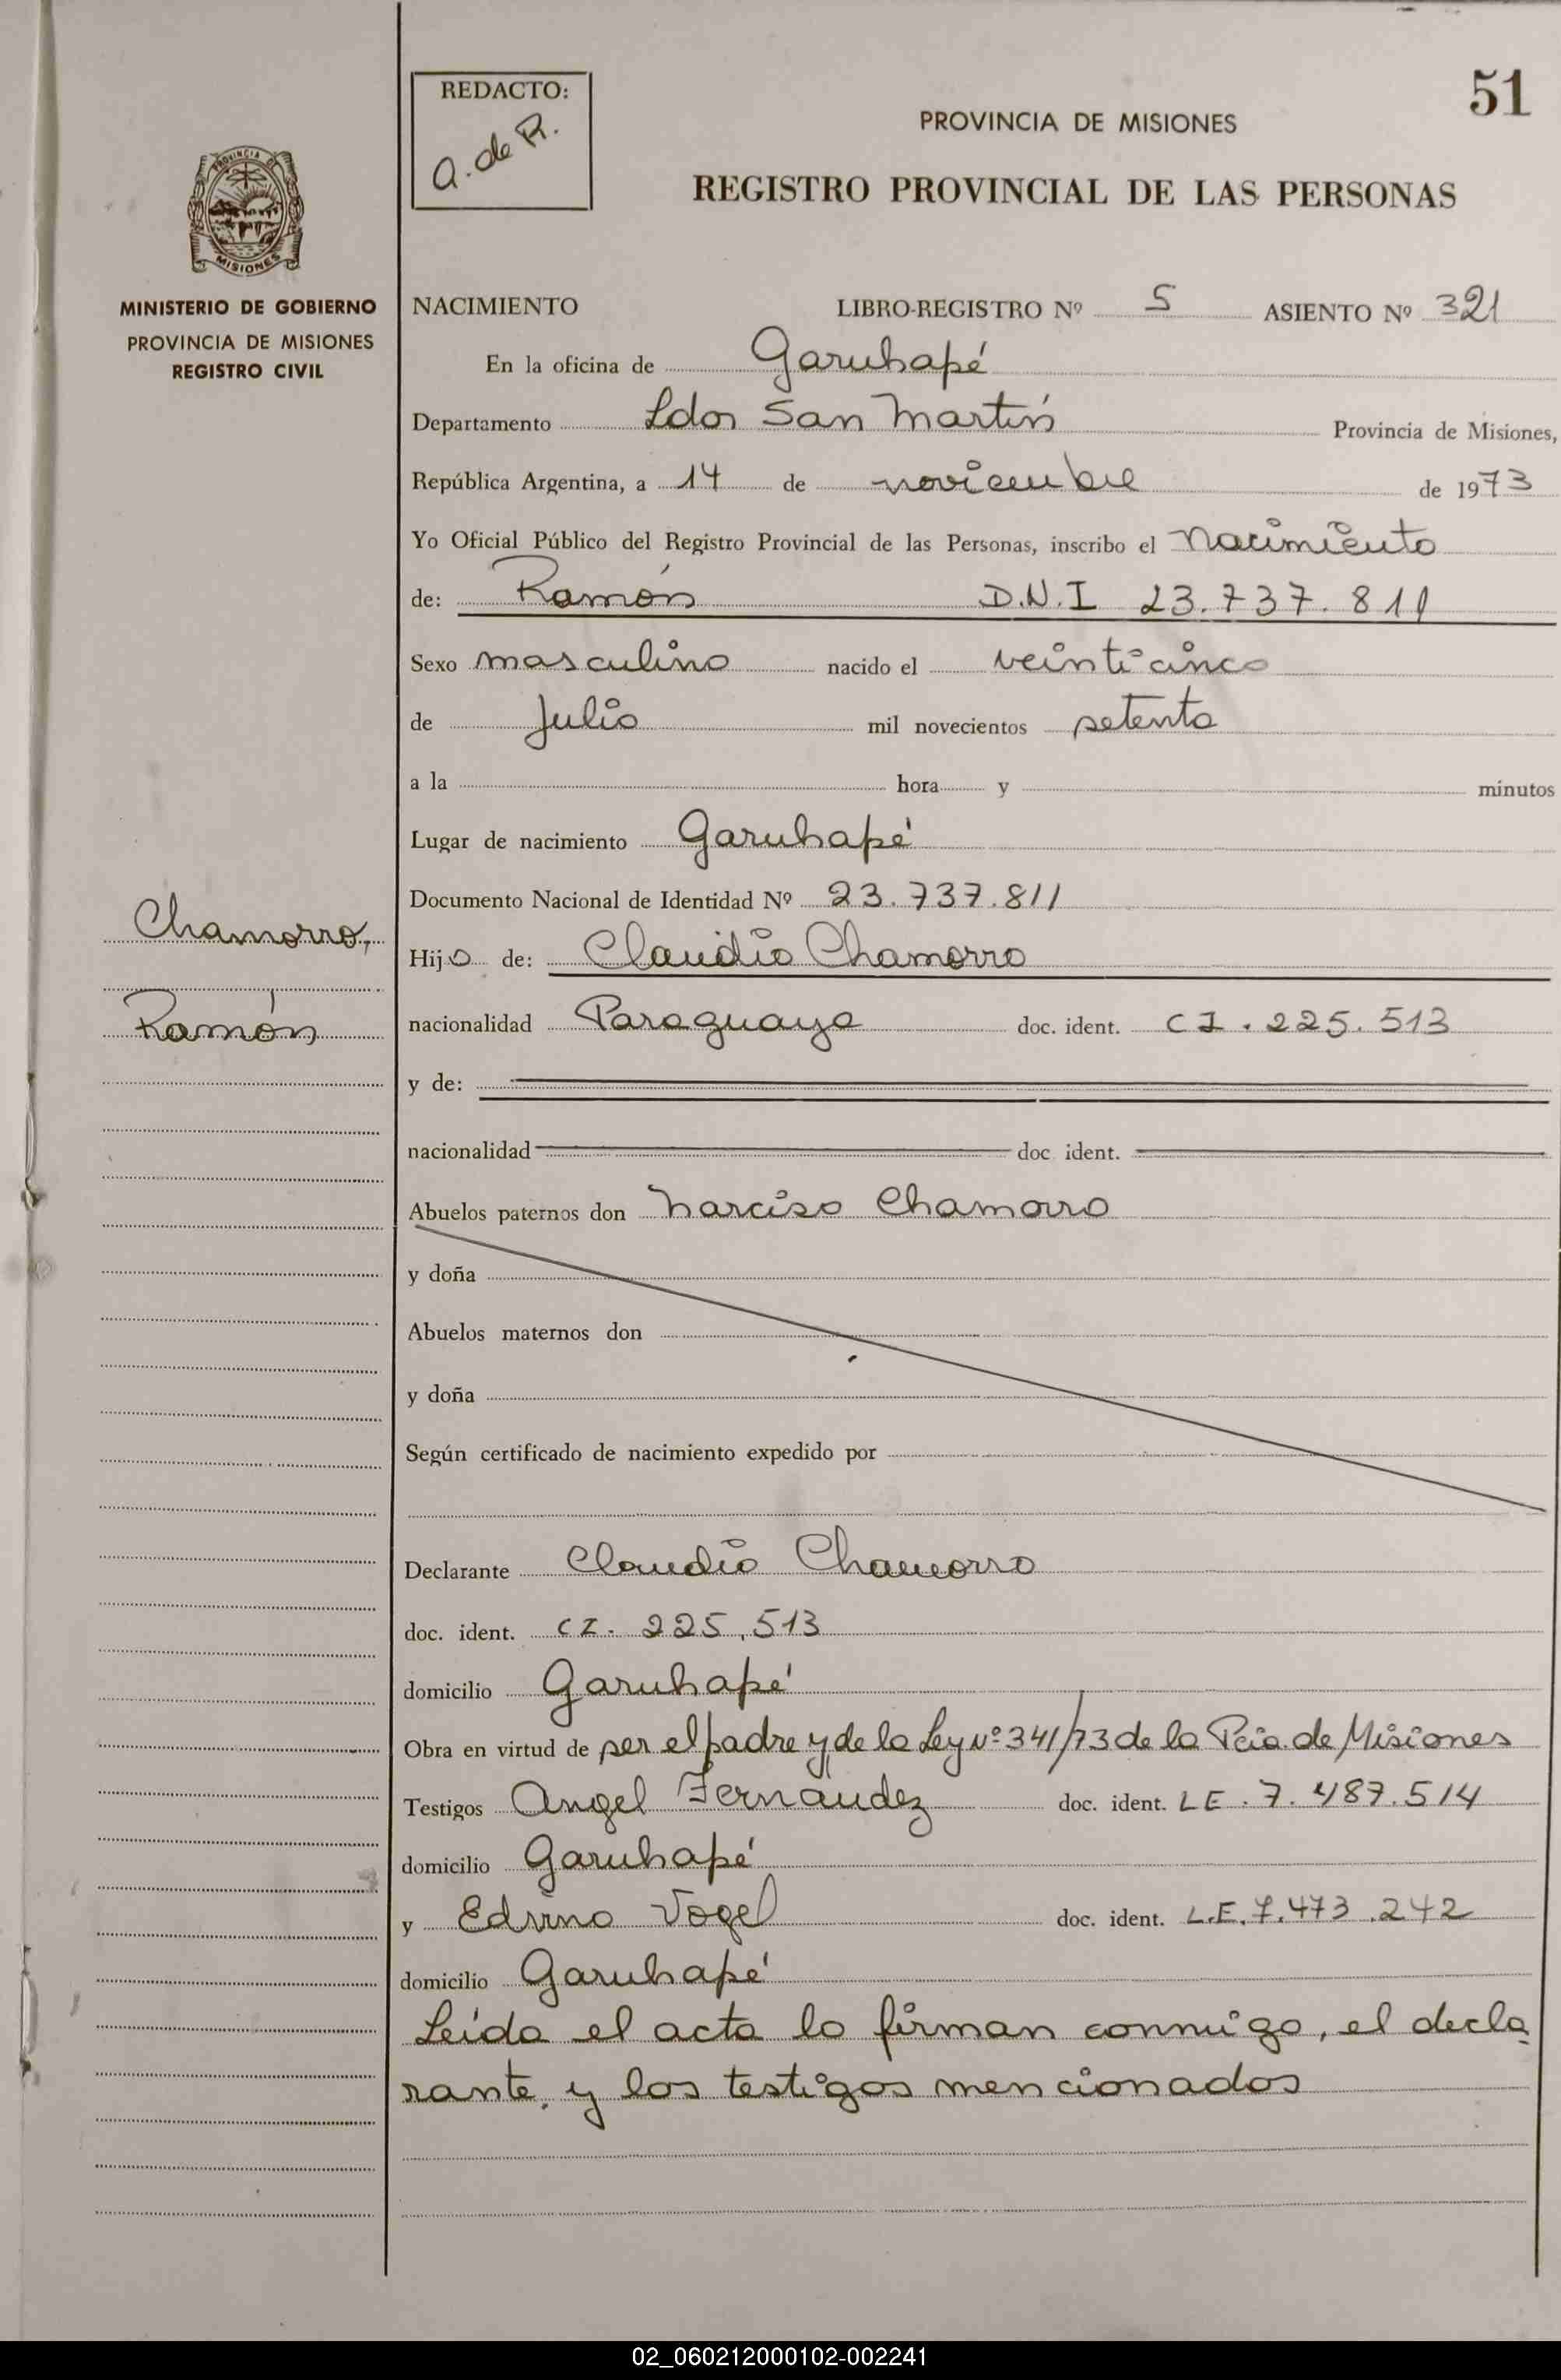 51
REDACTO:
a. de R.
PROVINCIA DE MISIONES
REGISTRO PROVINCIAL DE LAS PERSONAS
PROVINCIA DE
MISIONES
MINISTERIO DE GOBIERNO
PROVINCIA DE MISIONES
REGISTRO CIVIL
NACIMIENTO LIBRO-REGISTRO Nº 5 ASIENTO Nº 321
En la oficina de Garuhapé
Departamento Ldor San Martín Provincia de Misiones,
República Argentina, a 14 de noviembre de 1973
Yo Oficial Público del Registro Provincial de las Personas, inscribo el Nacimiento
de: Ramón D.N.I 23.737.811
Sexo masculino nacido el veinticinco
de Julio mil novecientos setenta
a la hora y minutos
Lugar de nacimiento Garuhapé
Documento Nacional de Identidad Nº 23.737.811
Chamorro,
Ramón
Hijo de: Claudio Chamorro
nacionalidad Paraguaya doc. ident. CI. 225.513
y de:
nacionalidad doc ident.
Abuelos paternos don Narciso Chamorro
y doña
Abuelos maternos don
y doña
Según certificado de nacimiento expedido por
Declarante Claudio Chamorro
doc. ident. CI. 225.513
domicilio Garuhapé
Obra en virtud de ser el padre y de la Ley Nº 341/73 de la Pcia. de Misiones
Testigos Angel Fernández doc. ident. LE. 7.487.514
domicilio Garuhapé
y Edvino Vogel doc. ident. L.E. 7.473.242
domicilio Garuhapé
Leída el acta lo firman conmigo, el decla
rante, y los testigos mencionados
02_060212000102-002241